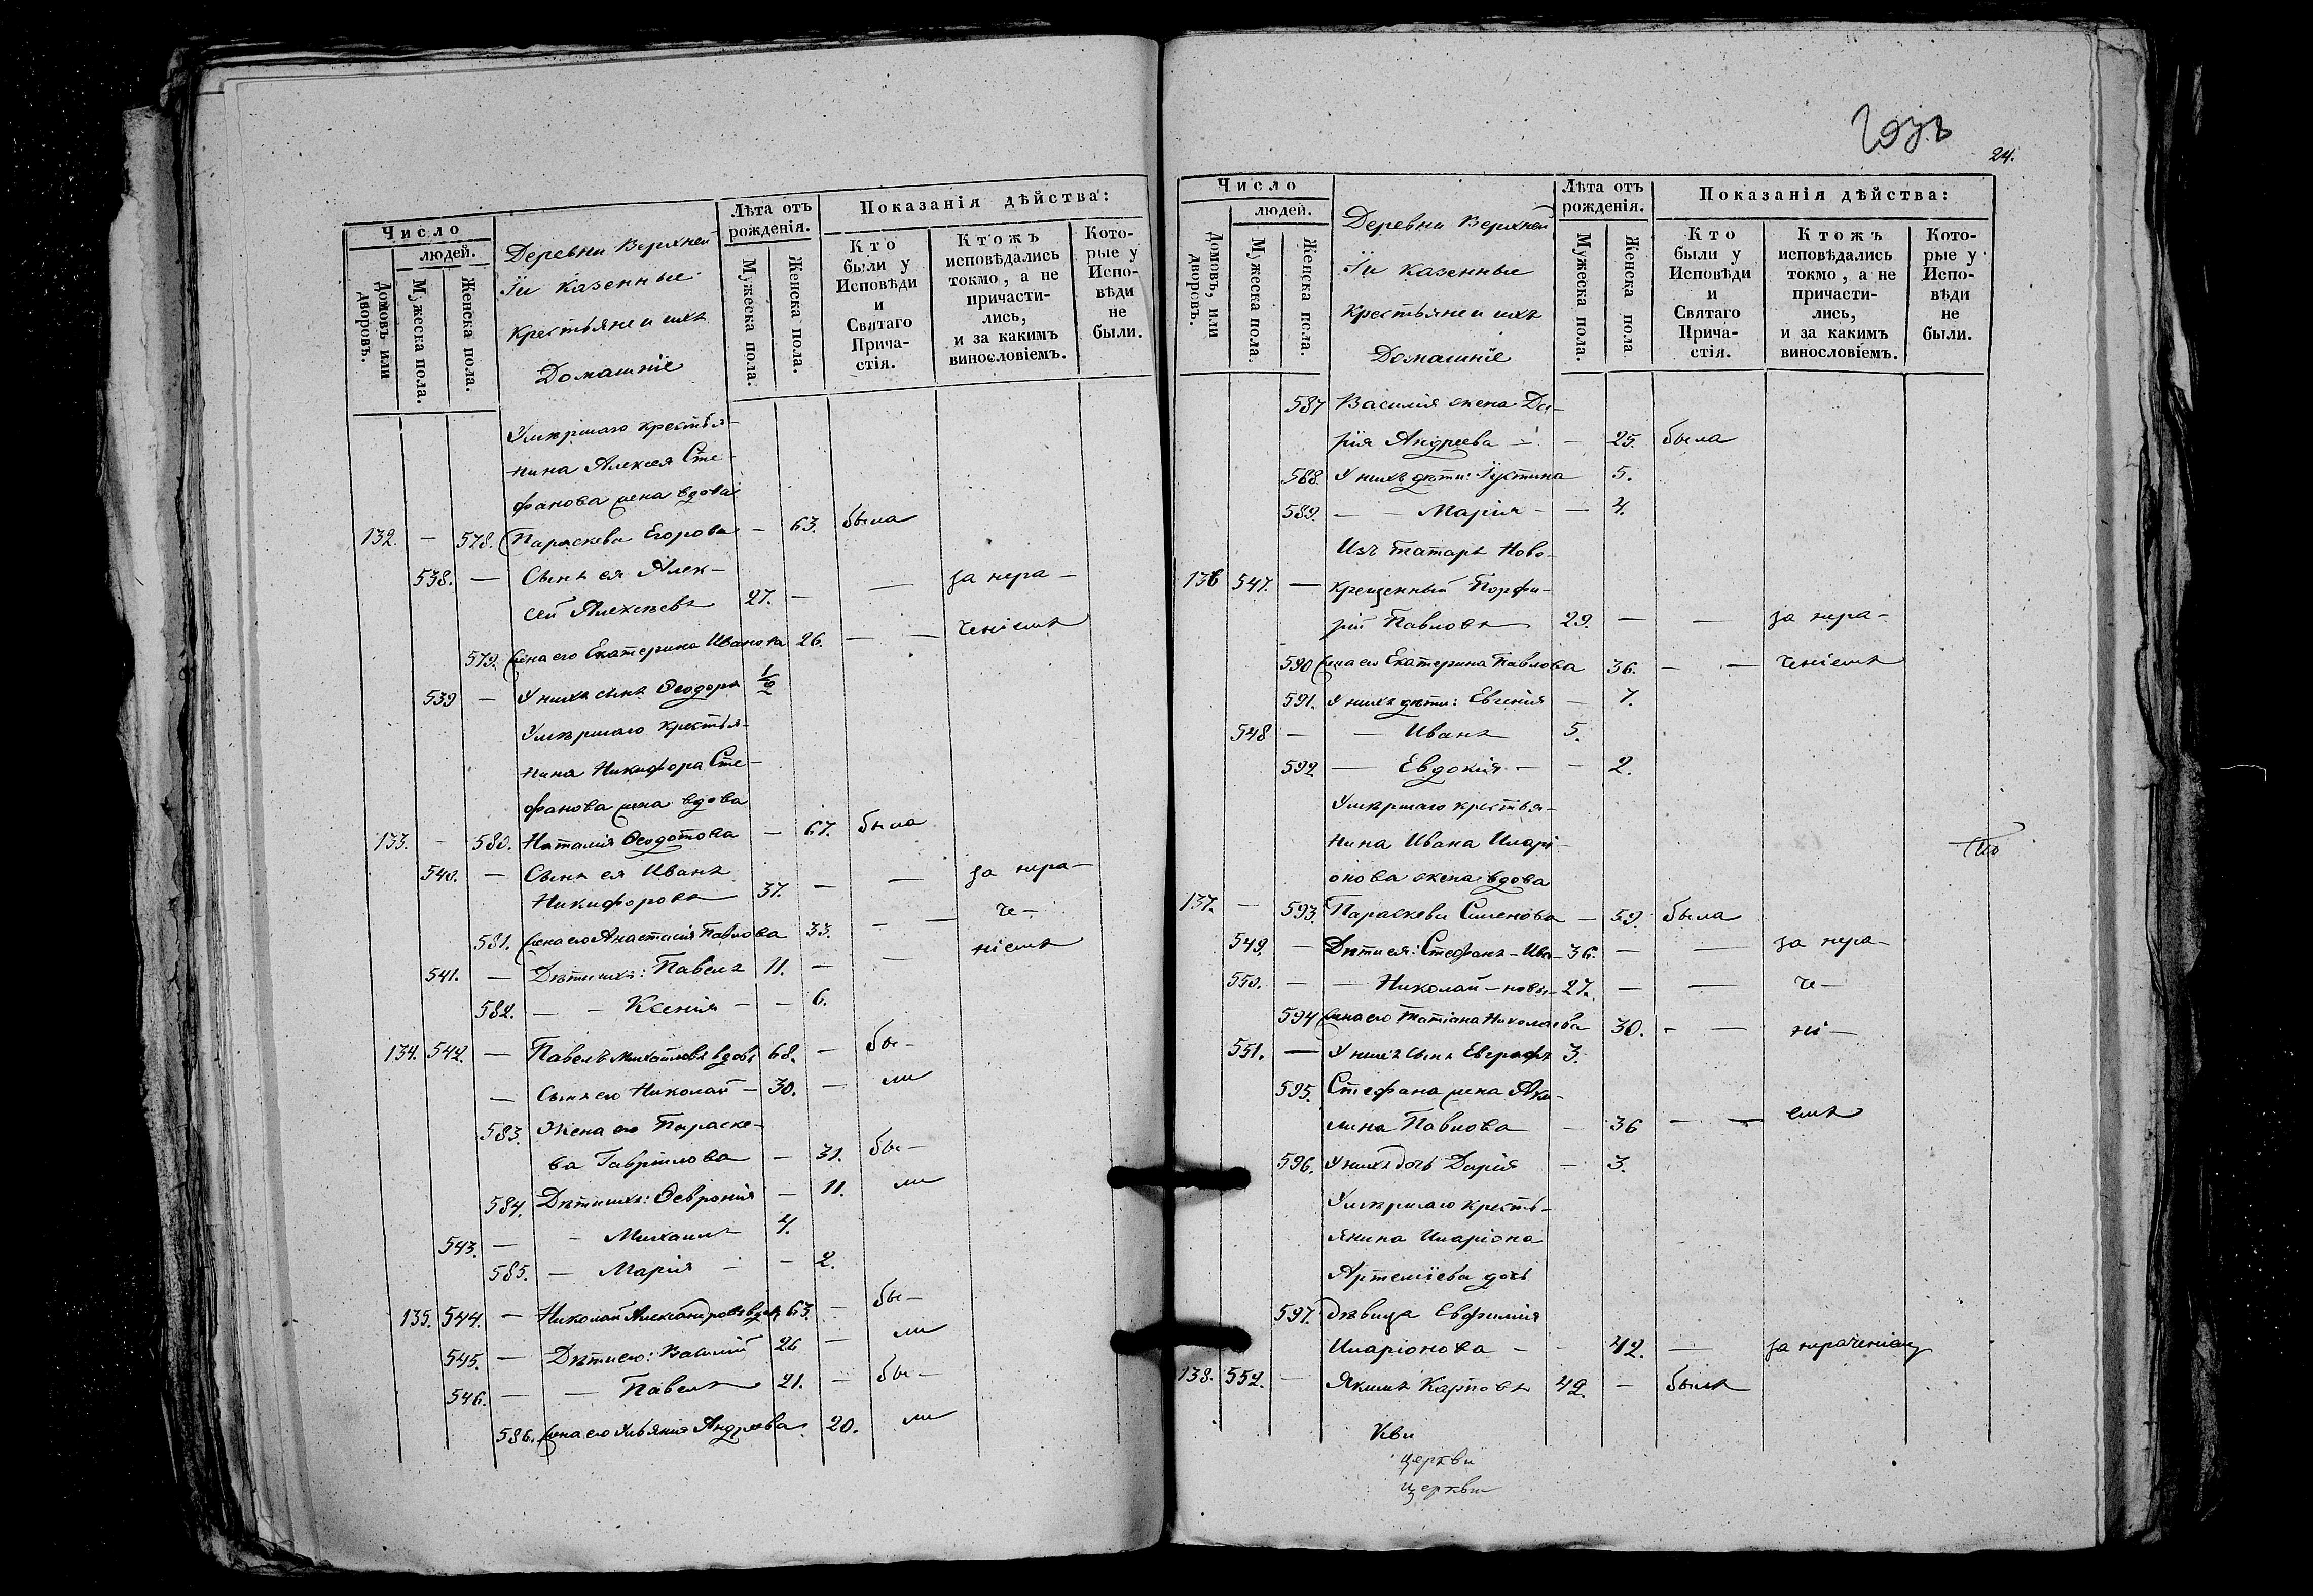 Число
людей.
Домовъ или дворовъ.
Мужеска пола.
Женска пола.
Деревни Верхней
Ги казенные
крестьяне и ихъ
Домашніе
Лѣта отъ рожденія.
Мужеска пола.
Женска пола.
Показанія дѣйства:
Кто были у Исповѣди и Святаго Прича-стія.
Ктожъ исповѣдались токмо, а не причасти-лись, и за какимъ винословіемъ.
Кото-рые у Испо-вѣди не были.
Умершаго крестья-
нина Алексея Сте-
фанова жена вдова
132. — 578. Параскева Егорова — 63. была
538. — Сынъ ея Алек-
сей Алексѣевъ 27. — — за нера-
579. Жена его Екатерина Иванова 26. — — ченіемъ
539 — У нихъ сынъ Ѳеодоръ 1/2
Умершаго крестья-
нина Никифора Сте-
фанова жена вдова
133. — 580. Наталія Ѳеодотова — 67. была
540. — Сынъ ея Иванъ
Никифоровъ 37. — — за нера-
581. Жена его Анастасія Павлова 33. — — че-
541. — Дѣти ихъ: Павелъ 11. — — ніемъ
582. — — Ксенія — — 6.
134. 542. — Павелъ Михайловъ вдовъ 68. — бы-
— Сынъ его Николай — 30. — ли
583. Жена его Параске-
ва Гавріилова — 31. бы-
584. Дѣти ихъ: Ѳевронія — 11. ли
543. — — Михаилъ 4.
585. — Марія — — 2.
135. 544. — Николай Александровъ вдовъ 63. — бы-
545. — Дѣти его: Василій 26 — ли
546. — — Павелъ 21. — бы-
586. Жена его Ульянія Андреева 20. ли
24.
Число
людей.
Домовъ, или дворовъ.
Мужеска пола.
Женска пола.
Деревни Верхней
Ги казенные
крестьяне и ихъ
Домашніе
Лѣта отъ рожденія.
Мужеска пола.
Женска пола
Показанія дѣйства:
Кто были у Исповѣди и Святаго Прича-стія.
Ктожъ исповѣдались токмо, а не причасти-лись, и за какимъ винословіемъ.
Кото-рые у Испо-вѣди не были.
587 Василія жена Да-
рія Андреева — — 25. была
588. У нихъ дѣти: Іустина 5.
589. — — Марія — — 4.
Изъ татаръ Ново-
136 547. — крещенный Порфи-
рій Павловъ 29. — — за нера-
590 Жена его Екатерина Павлова 36. — — ченіемъ
591. У нихъ дѣти: Евгенія — 7.
548 — — Иванъ 5.
592 — Евдокія — — 2.
Умершаго крестья-
нина Ивана Иларі-
онова жена вдова
137. — 593. Параскева Симеонова — 59. была
549. — Дѣти ея: Стефанъ — Ива- 36. — — за нера-
550. — — Николай — новы — 27. — — че-
594 Жена его Татіана Николаева 30. — — ні-
551. — У нихъ сынъ Евграфъ 3.
595. Стефана жена Аки-
лина Павлова — 36 — — емъ
596. У нихъ дочь Дарія — 3.
Умершаго кресть-
янина Иларіона
Артеміева дочь
597. дѣвица Евфимія
Иларіонова — — 42. — за нераченіемъ
138. 552. — Якимъ Карповъ 42. — былъ
церкви
церкви